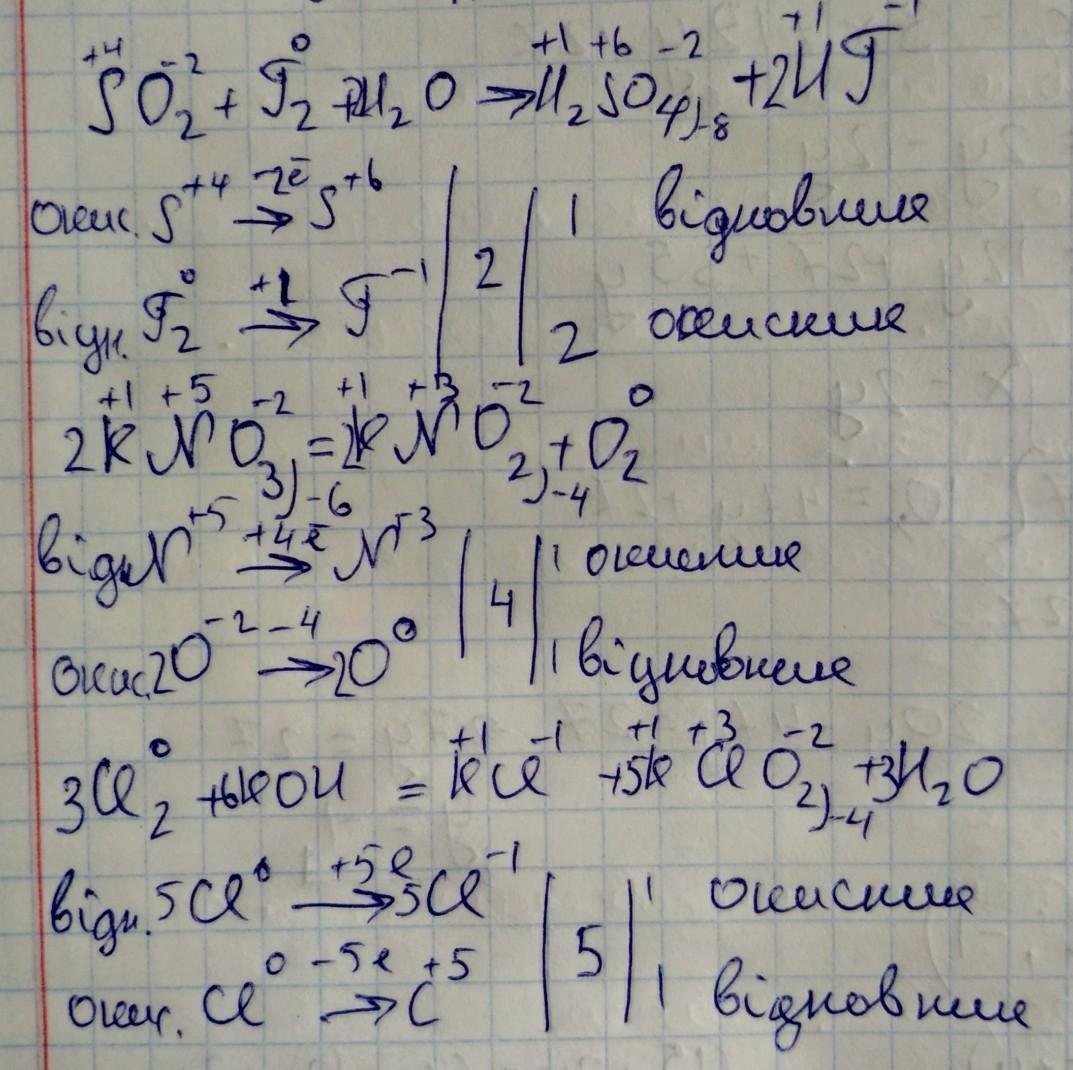 S⁺⁴O₂⁻² + I₂⁰ + 2H₂O → H₂⁺¹S⁺⁶O₄⁻²)₋₈ + 2H⁺¹I⁻¹
окис. S⁺⁴ –2ē → S⁺⁶ | 2 | 1 відновник
відн. I₂⁰ +1 → I⁻¹ | 2 окисник
2K⁺¹N⁺⁵O₃⁻²)₋₆ = 2K⁺¹N⁺³O₂⁻²)₋₄ + O₂⁰
відн N⁺⁵ +4ē → N⁺³ | 4 | 1 окисник
окис. 2O⁻² –4 → 2O⁰ | 1 відновник
3Cl₂⁰ + 6KOH = K⁺¹Cl⁻¹ + 5K⁺¹Cl⁺³O₂⁻²)₋₄ + 3H₂O
відн. 5Cl⁰ +5e → 5Cl⁻¹ | 5 | 1 окисник
окис. Cl⁰ –5e → C⁺⁵ | 1 відновник